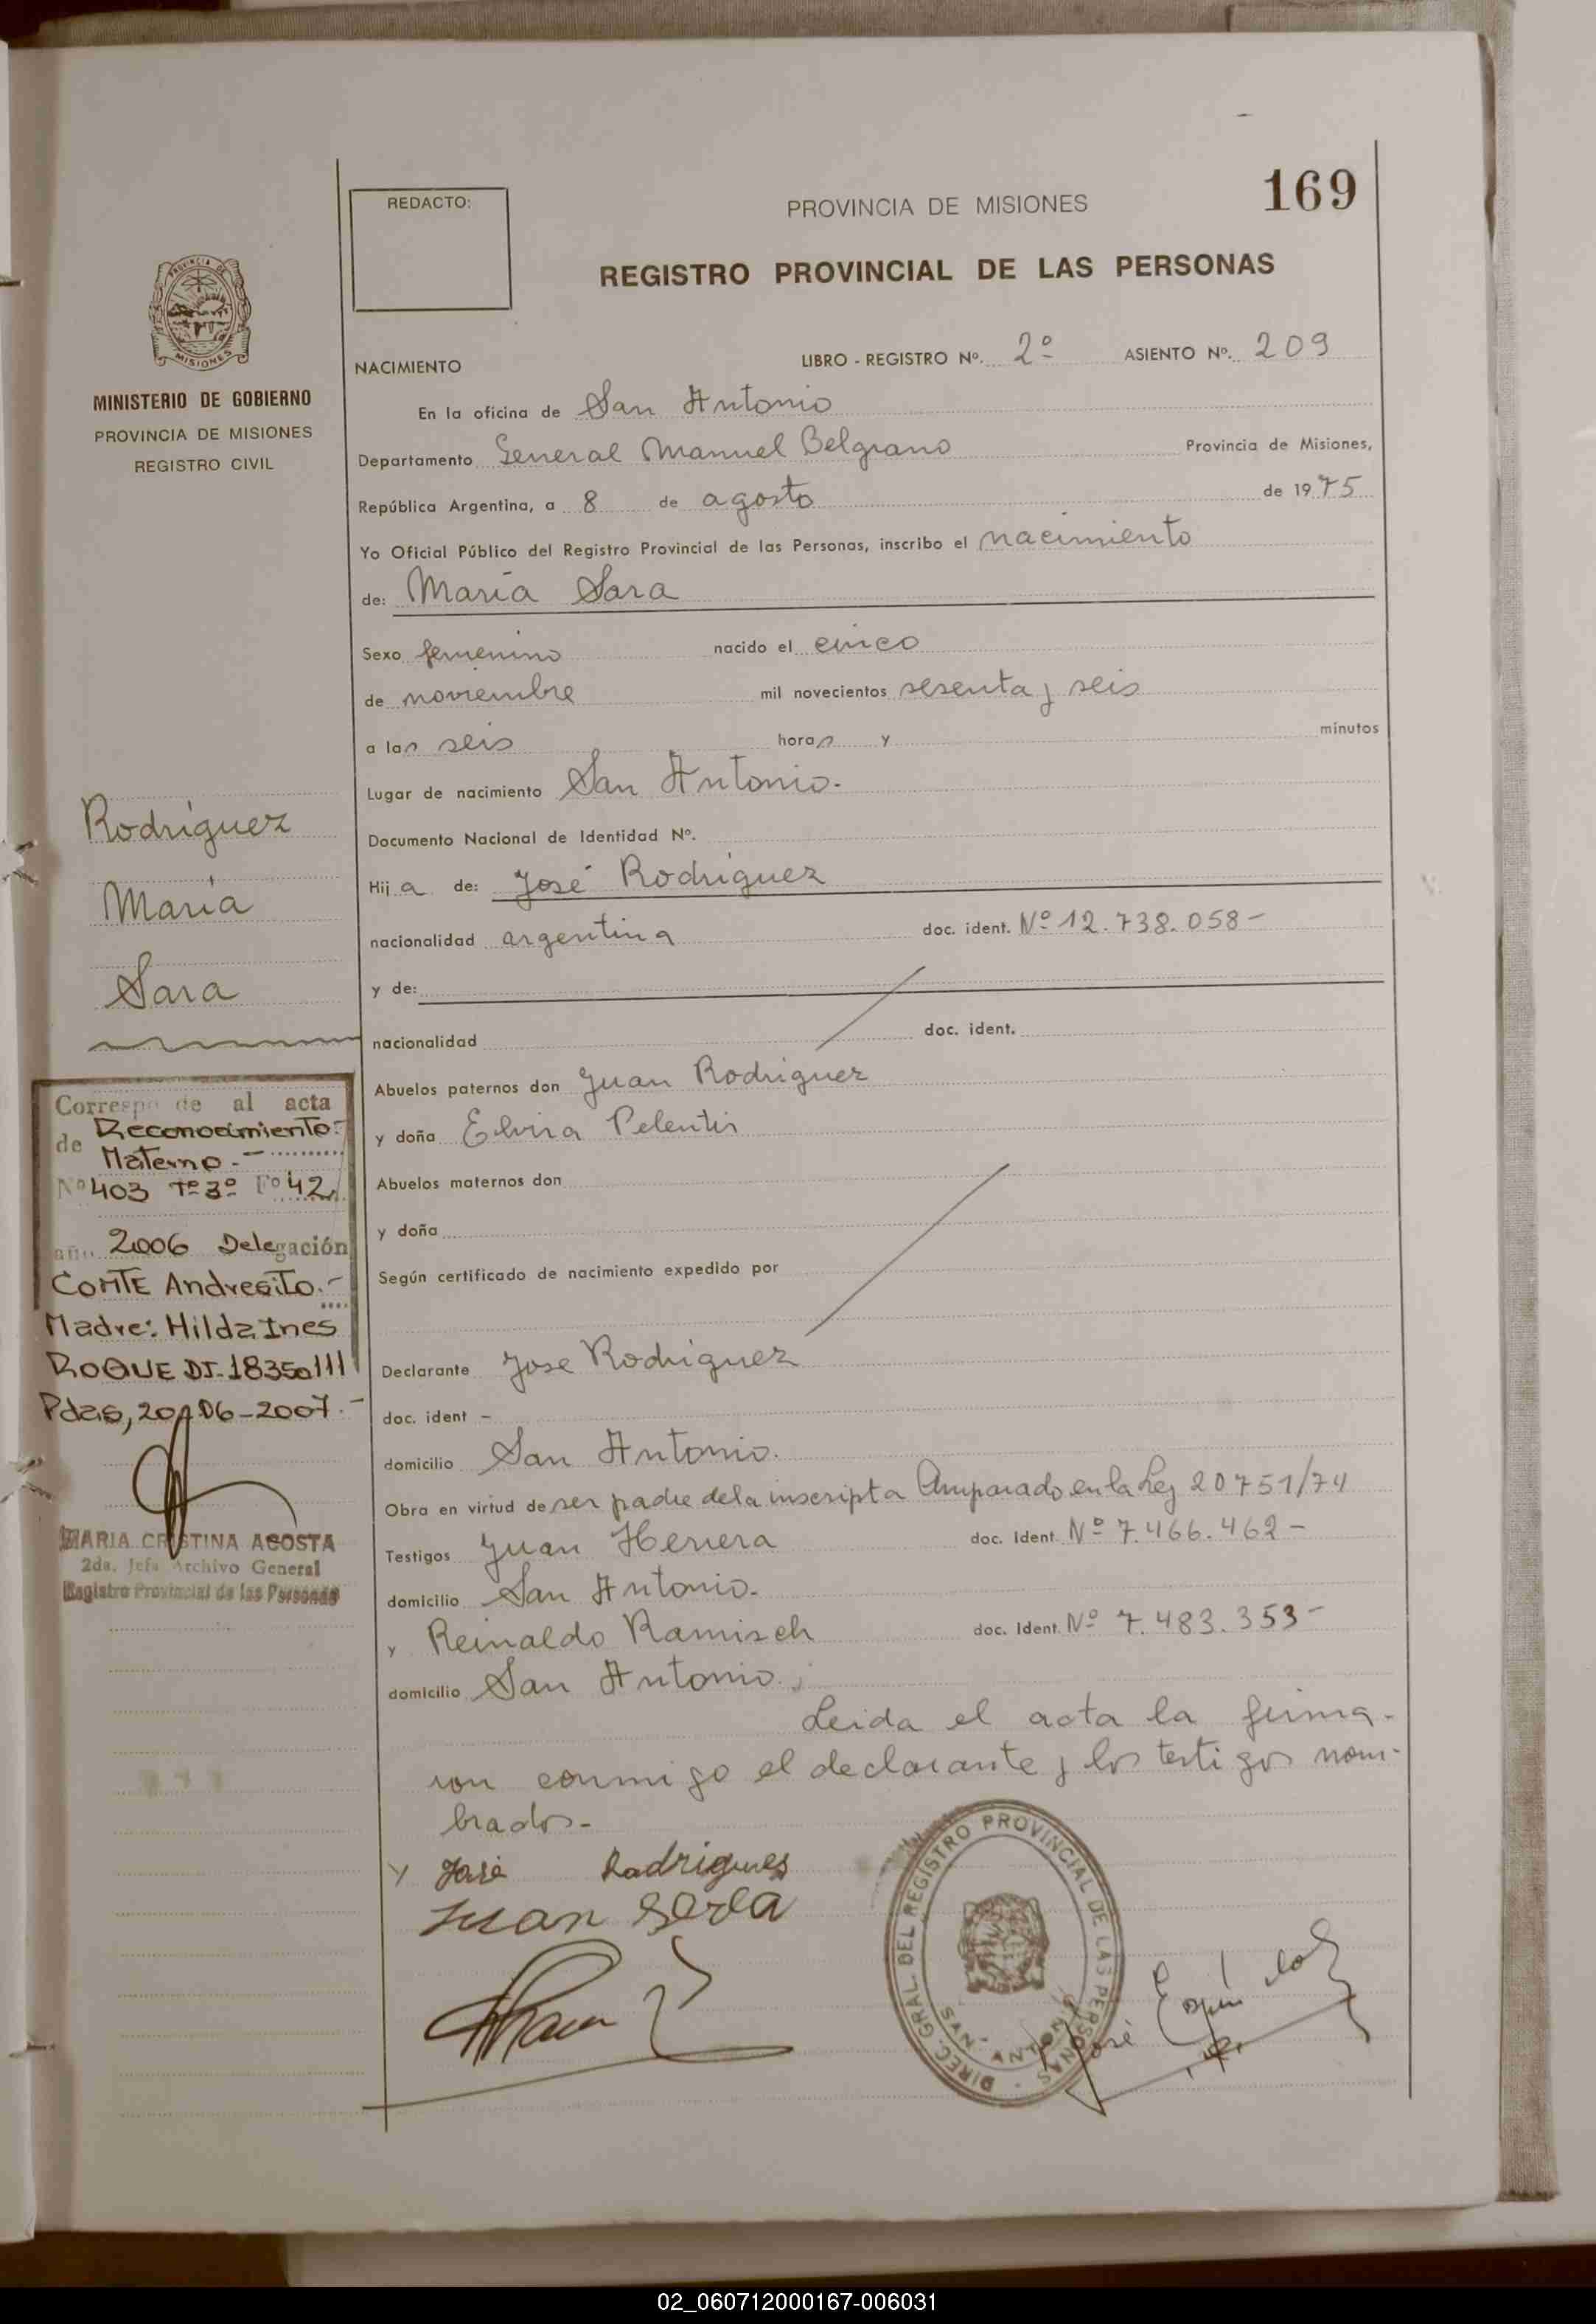 169
REDACTO:
PROVINCIA DE MISIONES
REGISTRO PROVINCIAL DE LAS PERSONAS
PROVINCIA DE
MISIONES
MINISTERIO DE GOBIERNO
PROVINCIA DE MISIONES
REGISTRO CIVIL
NACIMIENTO LIBRO - REGISTRO Nº. 2º ASIENTO Nº. 209
En la oficina de San Antonio
Departamento General Manuel Belgrano Provincia de Misiones,
República Argentina, a 8 de agosto de 1975
Yo Oficial Público del Registro Provincial de las Personas, inscribo el nacimiento
de: María Sara
Sexo femenino nacido el cinco
de noviembre mil novecientos sesenta y seis
a las seis horas y minutos
Lugar de nacimiento San Antonio.
Documento Nacional de Identidad Nº.
Hija de: José Rodríguez
nacionalidad argentina doc. ident. Nº 12.738.058-
y de:
nacionalidad doc. ident.
Abuelos paternos don Juan Rodriguez
y doña Elvira Pelentir
Abuelos maternos don
y doña
Según certificado de nacimiento expedido por
Declarante Jose Rodriguez
doc. ident -
domicilio San Antonio.
Obra en virtud de ser padre de la inscripta Amparado en la Ley 20751/74
Testigos Juan Herrera doc. Ident. Nº 7.466.462-
domicilio San Antonio.
y Reinaldo Ramisch doc. Ident. Nº 7.483.353-
domicilio San Antonio.
Leida el acta la firma-
ron conmigo el declarante y los testigos nom-
brados-
José Rodrigues
Juan
DIREC. GRAL. DEL REGISTRO PROVINCIAL DE LAS PERSONAS
SAN ANTONIO
José
Rodríguez
María
Sara
Corresponde al acta
de Reconocimiento
Materno.-
Nº 403 Tº 3º Fº 42
año 2006 Delegación
Comte Andresito.-
Madre: Hilda Ines
ROQUE DI. 18350111
Pdas, 20-06-2007.-
MARIA CRISTINA ACOSTA
2da. Jefa Archivo General
Registro Provincial de las Personas
02_060712000167-006031